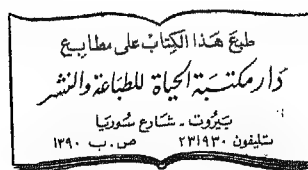 طبع هذا الكتاب على مطابع
دار مكتبة الحياة للطباعة والنشر
بيروت - شارع سوريا
تليفون ٢٣١٩٣٠ ص.ب ١٣٩٠